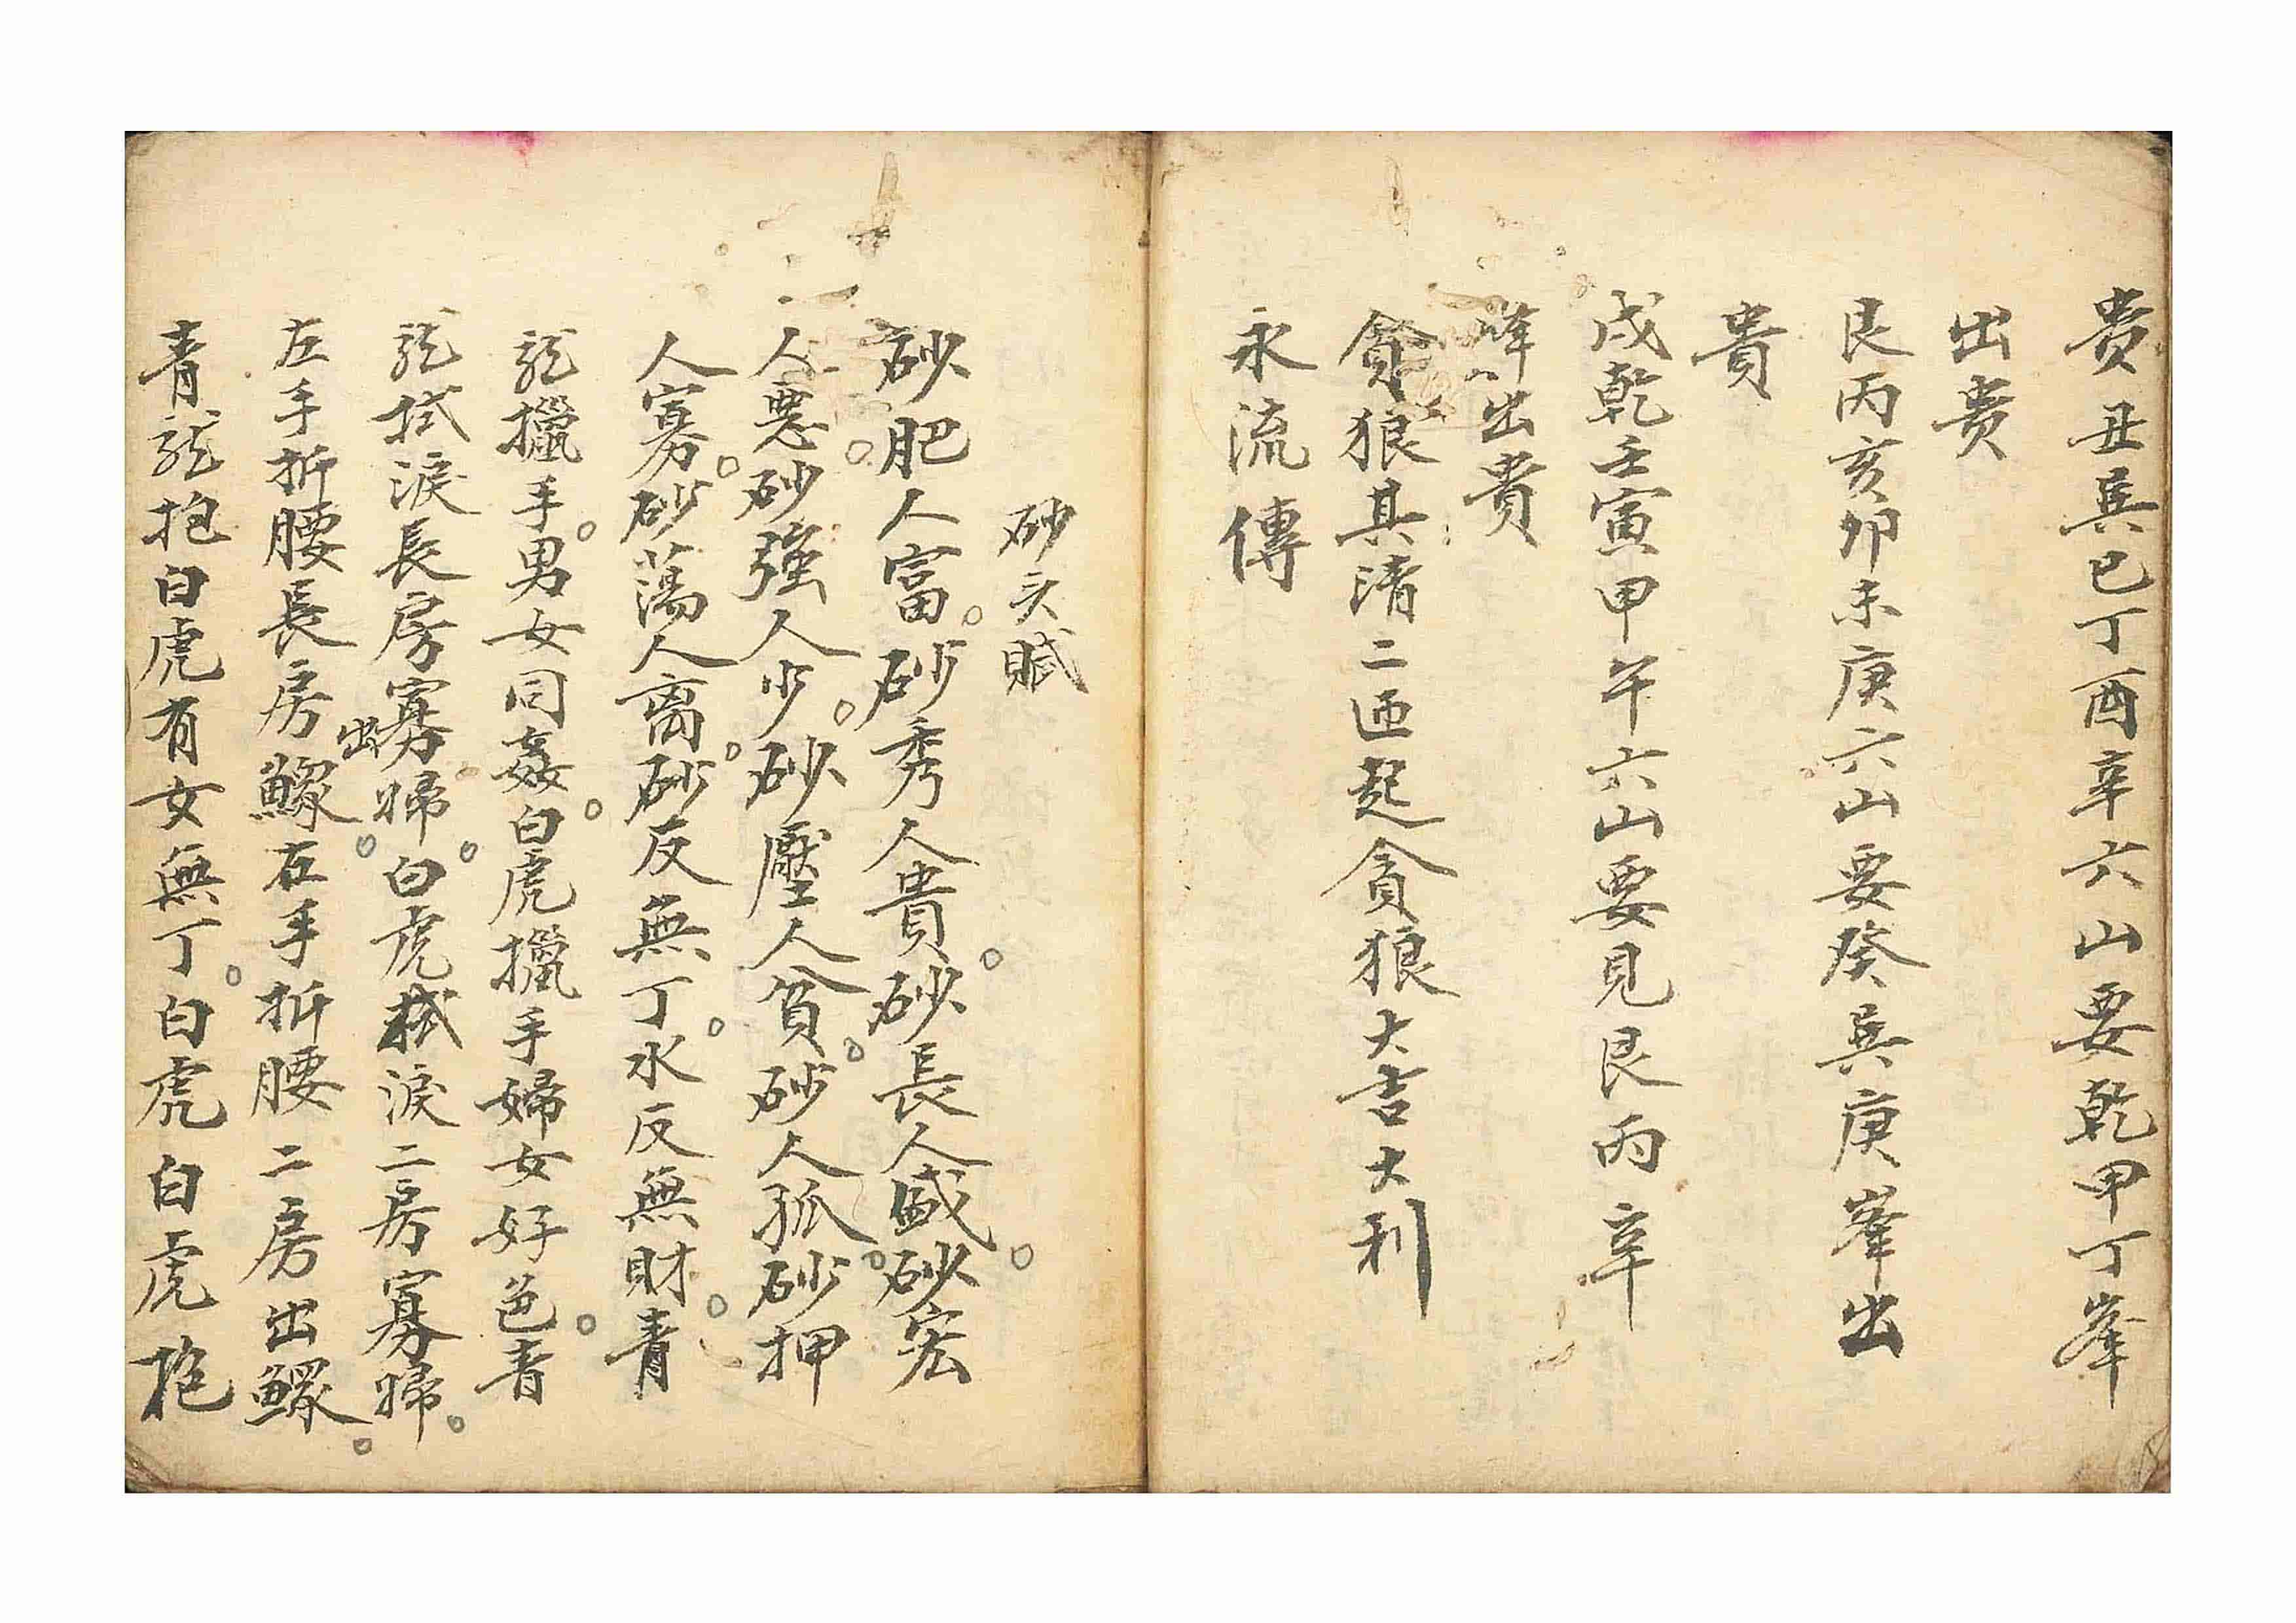 貴丑巽巳丁酉辛六山要乾甲丁峯
出貴
艮丙亥卯未庚六山要癸巽庚峯出
貴
戌乾壬寅甲午六山要見艮丙辛
峰出貴
貪狼其清二迊起貪狼大吉大利
永流傳
砂头賦
砂肥人富。砂秀人貴。砂長人盛。砂宏
人惡。砂強人少。砂壓人貧。砂人孤。砂押
人寡。砂蕩人离。砂反無丁。水反無財。青
龍擸手。男女同姦。白虎擸手婦女好色。青
龍拭淚長房寡婦。白虎拭淚二房寡婦。
左手折腰長房出鰥。右手折腰二房出鰥。
青龍抱白虎有女無丁。白虎白虎抱